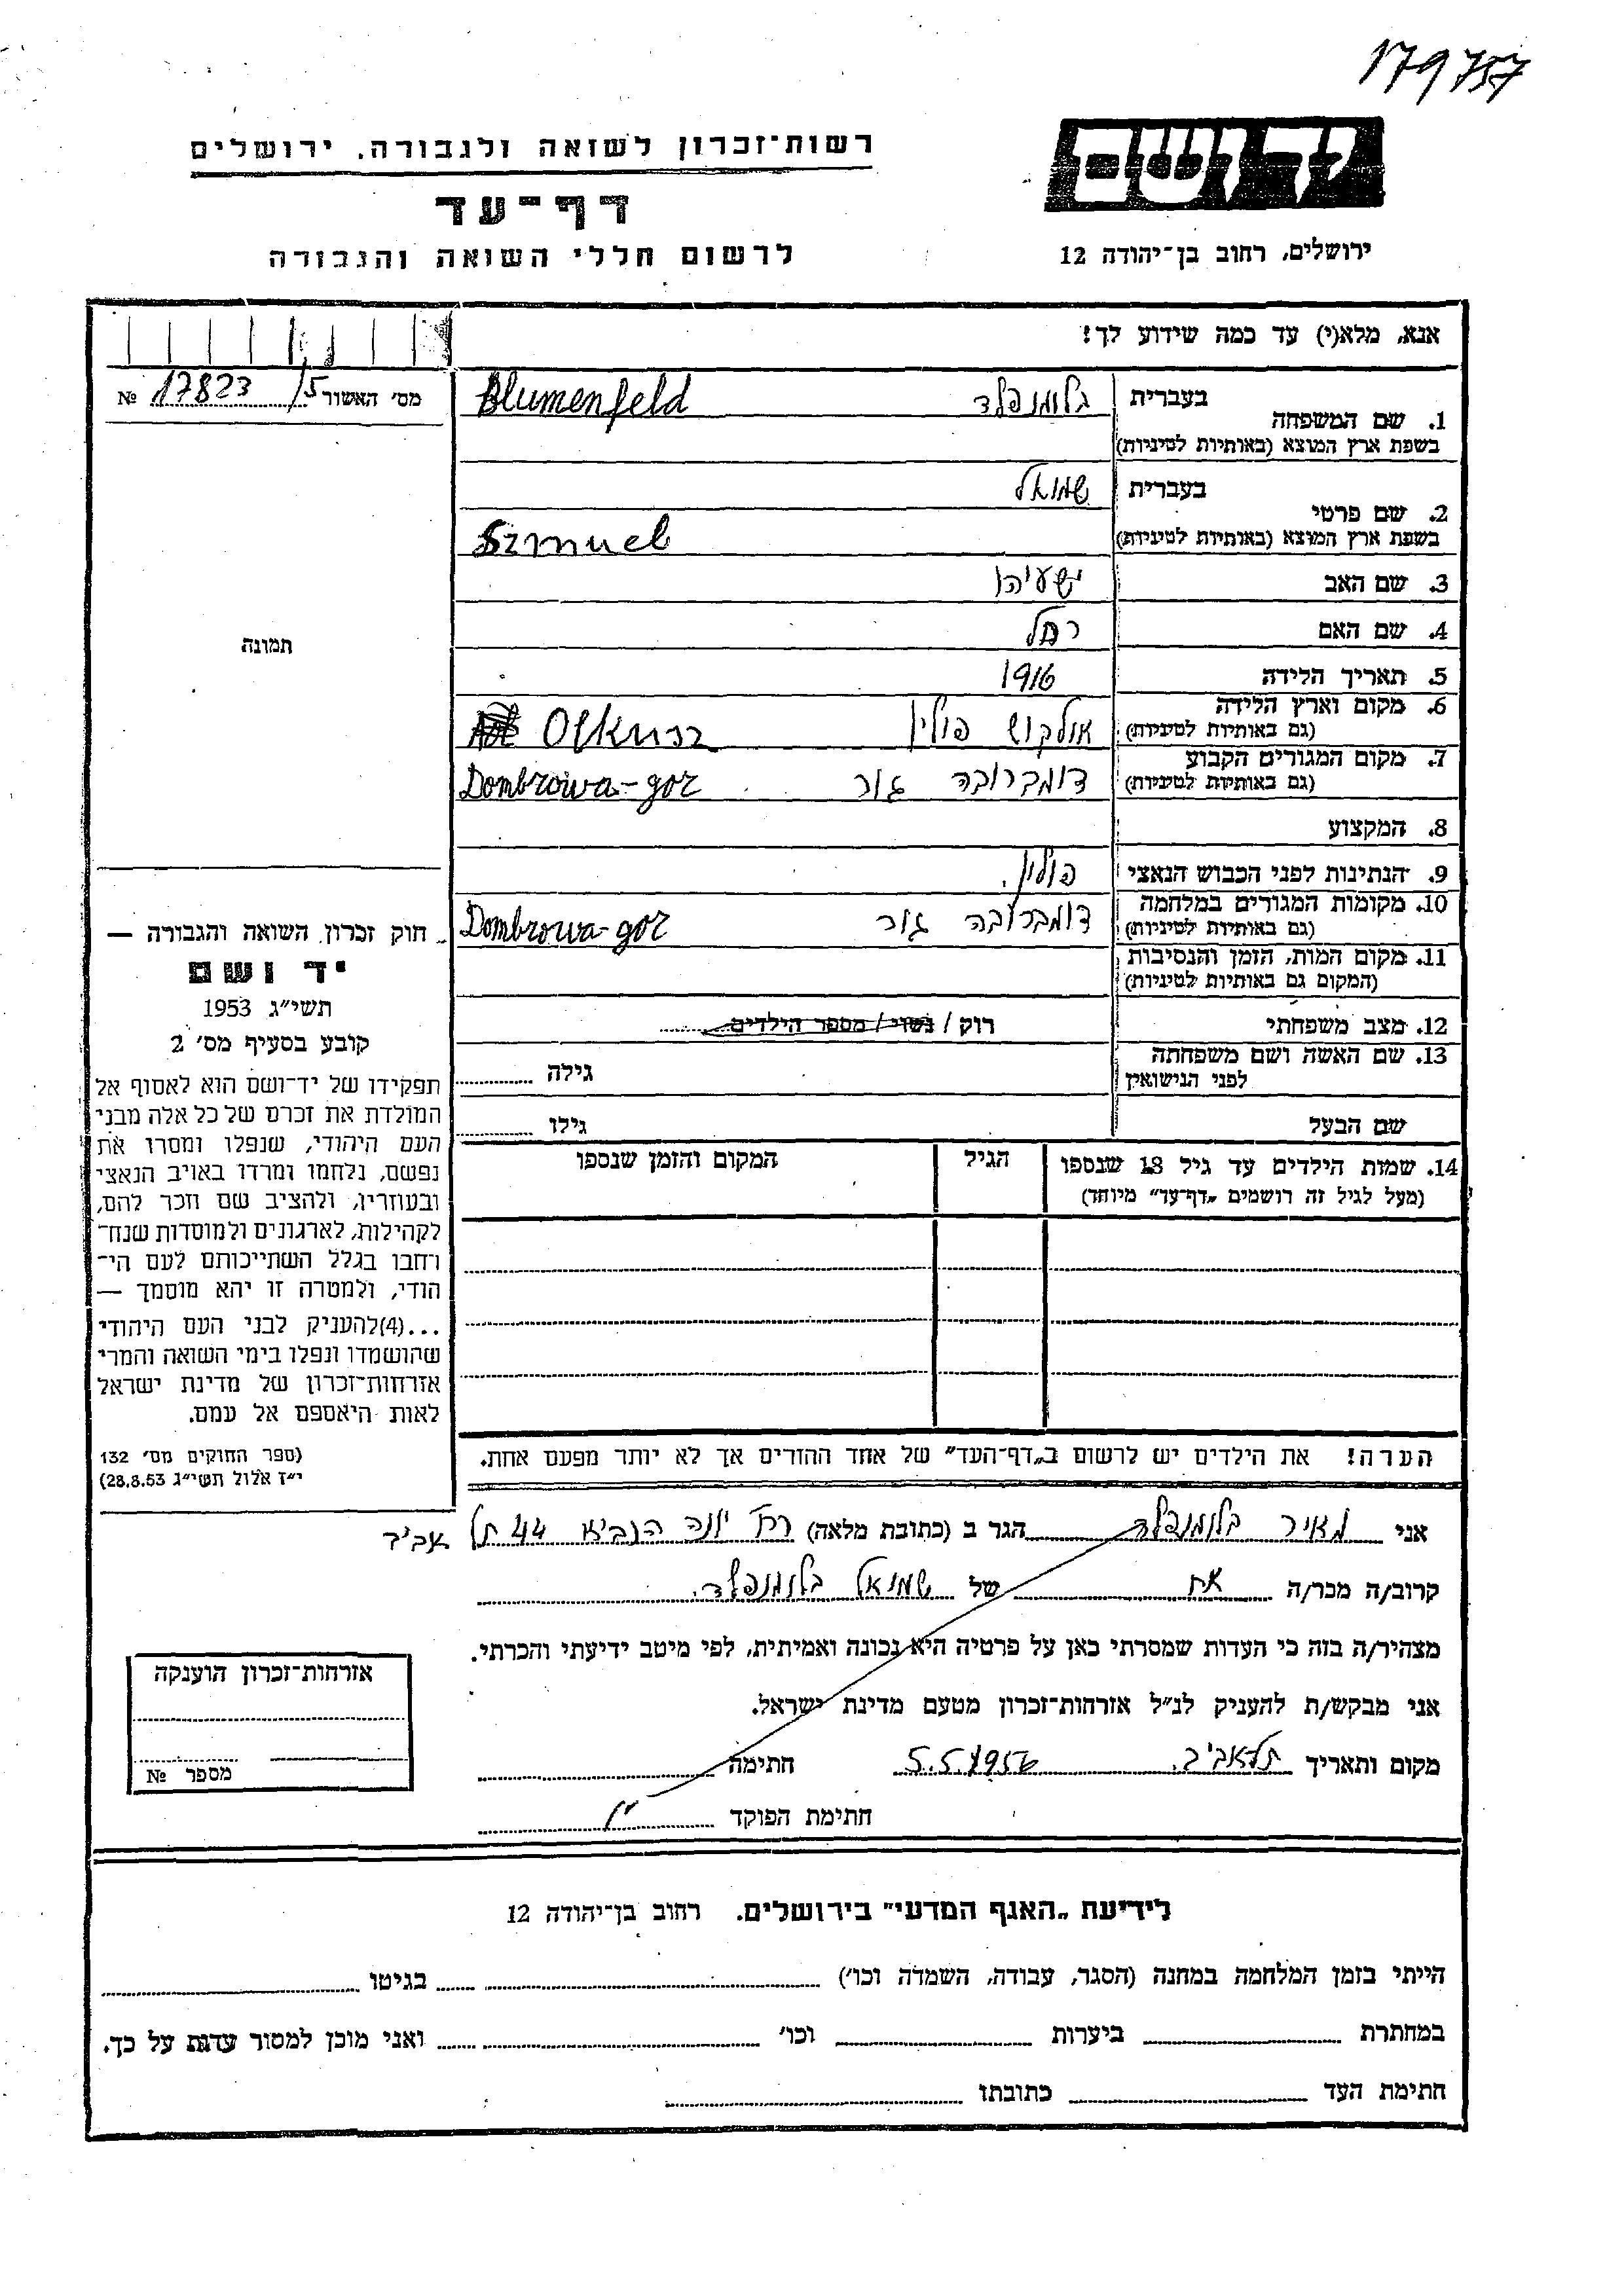 179757
יד ושם
רשות־זכרון לשואה ולגבורה. ירושלים
דף־עד
לרשום חללי השואה והגבורה
ירושלים, רחוב בן־יהודה 12
אנא, מלא(י) עד כמה שידוע לך!
מס׳ האשור 17823/5 №
1. שם המשפחה
בעברית בלומנפלד Blumenfeld
בשפת ארץ המוצא (באותיות לטיניות)
2. שם פרטי
בעברית שמואל
בשפת ארץ המוצא (באותיות לטיניות) Szmuel
3. שם האב ישעיהו
4. שם האם רחל
5. תאריך הלידה 1916
6. מקום וארץ הלידה
(גם באותיות לטיניות) אולקוש פולין Olkusz
7. מקום המגורים הקבוע
(גם באותיות לטיניות) דומברובה גור Dombrowa-gor
8. המקצוע
9. הנתינות לפני הכבוש הנאצי פולין.
10. מקומות המגורים במלחמה
(גם באותיות לטיניות) דומברובה גור Dombrowa-gor
11. מקום המות, הזמן והנסיבות
(המקום גם באותיות לטיניות)
12. מצב משפחתי רוק / נשוי / מספר הילדים
13. שם האשה ושם משפחתה
לפני הנישואין גילה
שם הבעל גילו
14. שמות הילדים עד גיל 18 שנספו הגיל המקום והזמן שנספו
(מעל לגיל זה רושמים „דף־עד״ מיוחד)
הערה! את הילדים יש לרשום ב„דף־העד״ של אחד ההורים אך לא יותר מפעם אחת.
תמונה
חוק זכרון השואה והגבורה —
יד ושם
תשי״ג 1953
קובע בסעיף מס׳ 2
תפקידו של יד־ושם הוא לאסוף אל
המולדת את זכרם של כל אלה מבני
העם היהודי, שנפלו ומסרו את
נפשם, נלחמו ומרדו באויב הנאצי
ובעוזריו, ולהציב שם וזכר להם,
לקהילות, לארגונים ולמוסדות שנח־
רחבו בגלל השתייכותם לעם הי־
הודי, ולמטרה זו יהא מוסמך —
...(4)להעניק לבני העם היהודי
שהושמדו ונפלו בימי השואה והמרי
אזרחות־זכרון של מדינת ישראל
לאות היאספם אל עמם.
(ספר החוקים מס׳ 132
י״ז אלול תשי״ג 28.8.53)
אני מאיר בלומנפלד הגר ב (כתובת מלאה) רח׳ יונה הנביא 44 תל אביב
קרוב/ה מכר/ה אח של שמואל בלומנפלד.
מצהיר/ה בזה כי העדות שמסרתי כאן על פרטיה היא נכונה ואמיתית, לפי מיטב ידיעתי והכרתי.
אני מבקש/ת להעניק לנ״ל אזרחות־זכרון מטעם מדינת ישראל.
מקום ותאריך תל אביב. 5.5.1956 חתימה
חתימת הפוקד
אזרחות־זכרון הוענקה
מספר №
לידיעת „האגף המדעי״ בירושלים. רחוב בן־יהודה 12
הייתי בזמן המלחמה במחנה (הסגר, עבודה, השמדה וכו׳) בגיטו
במחתרת ביערות וכו׳ ואני מוכן למסור עדות על כך.
חתימת העד כתובתו